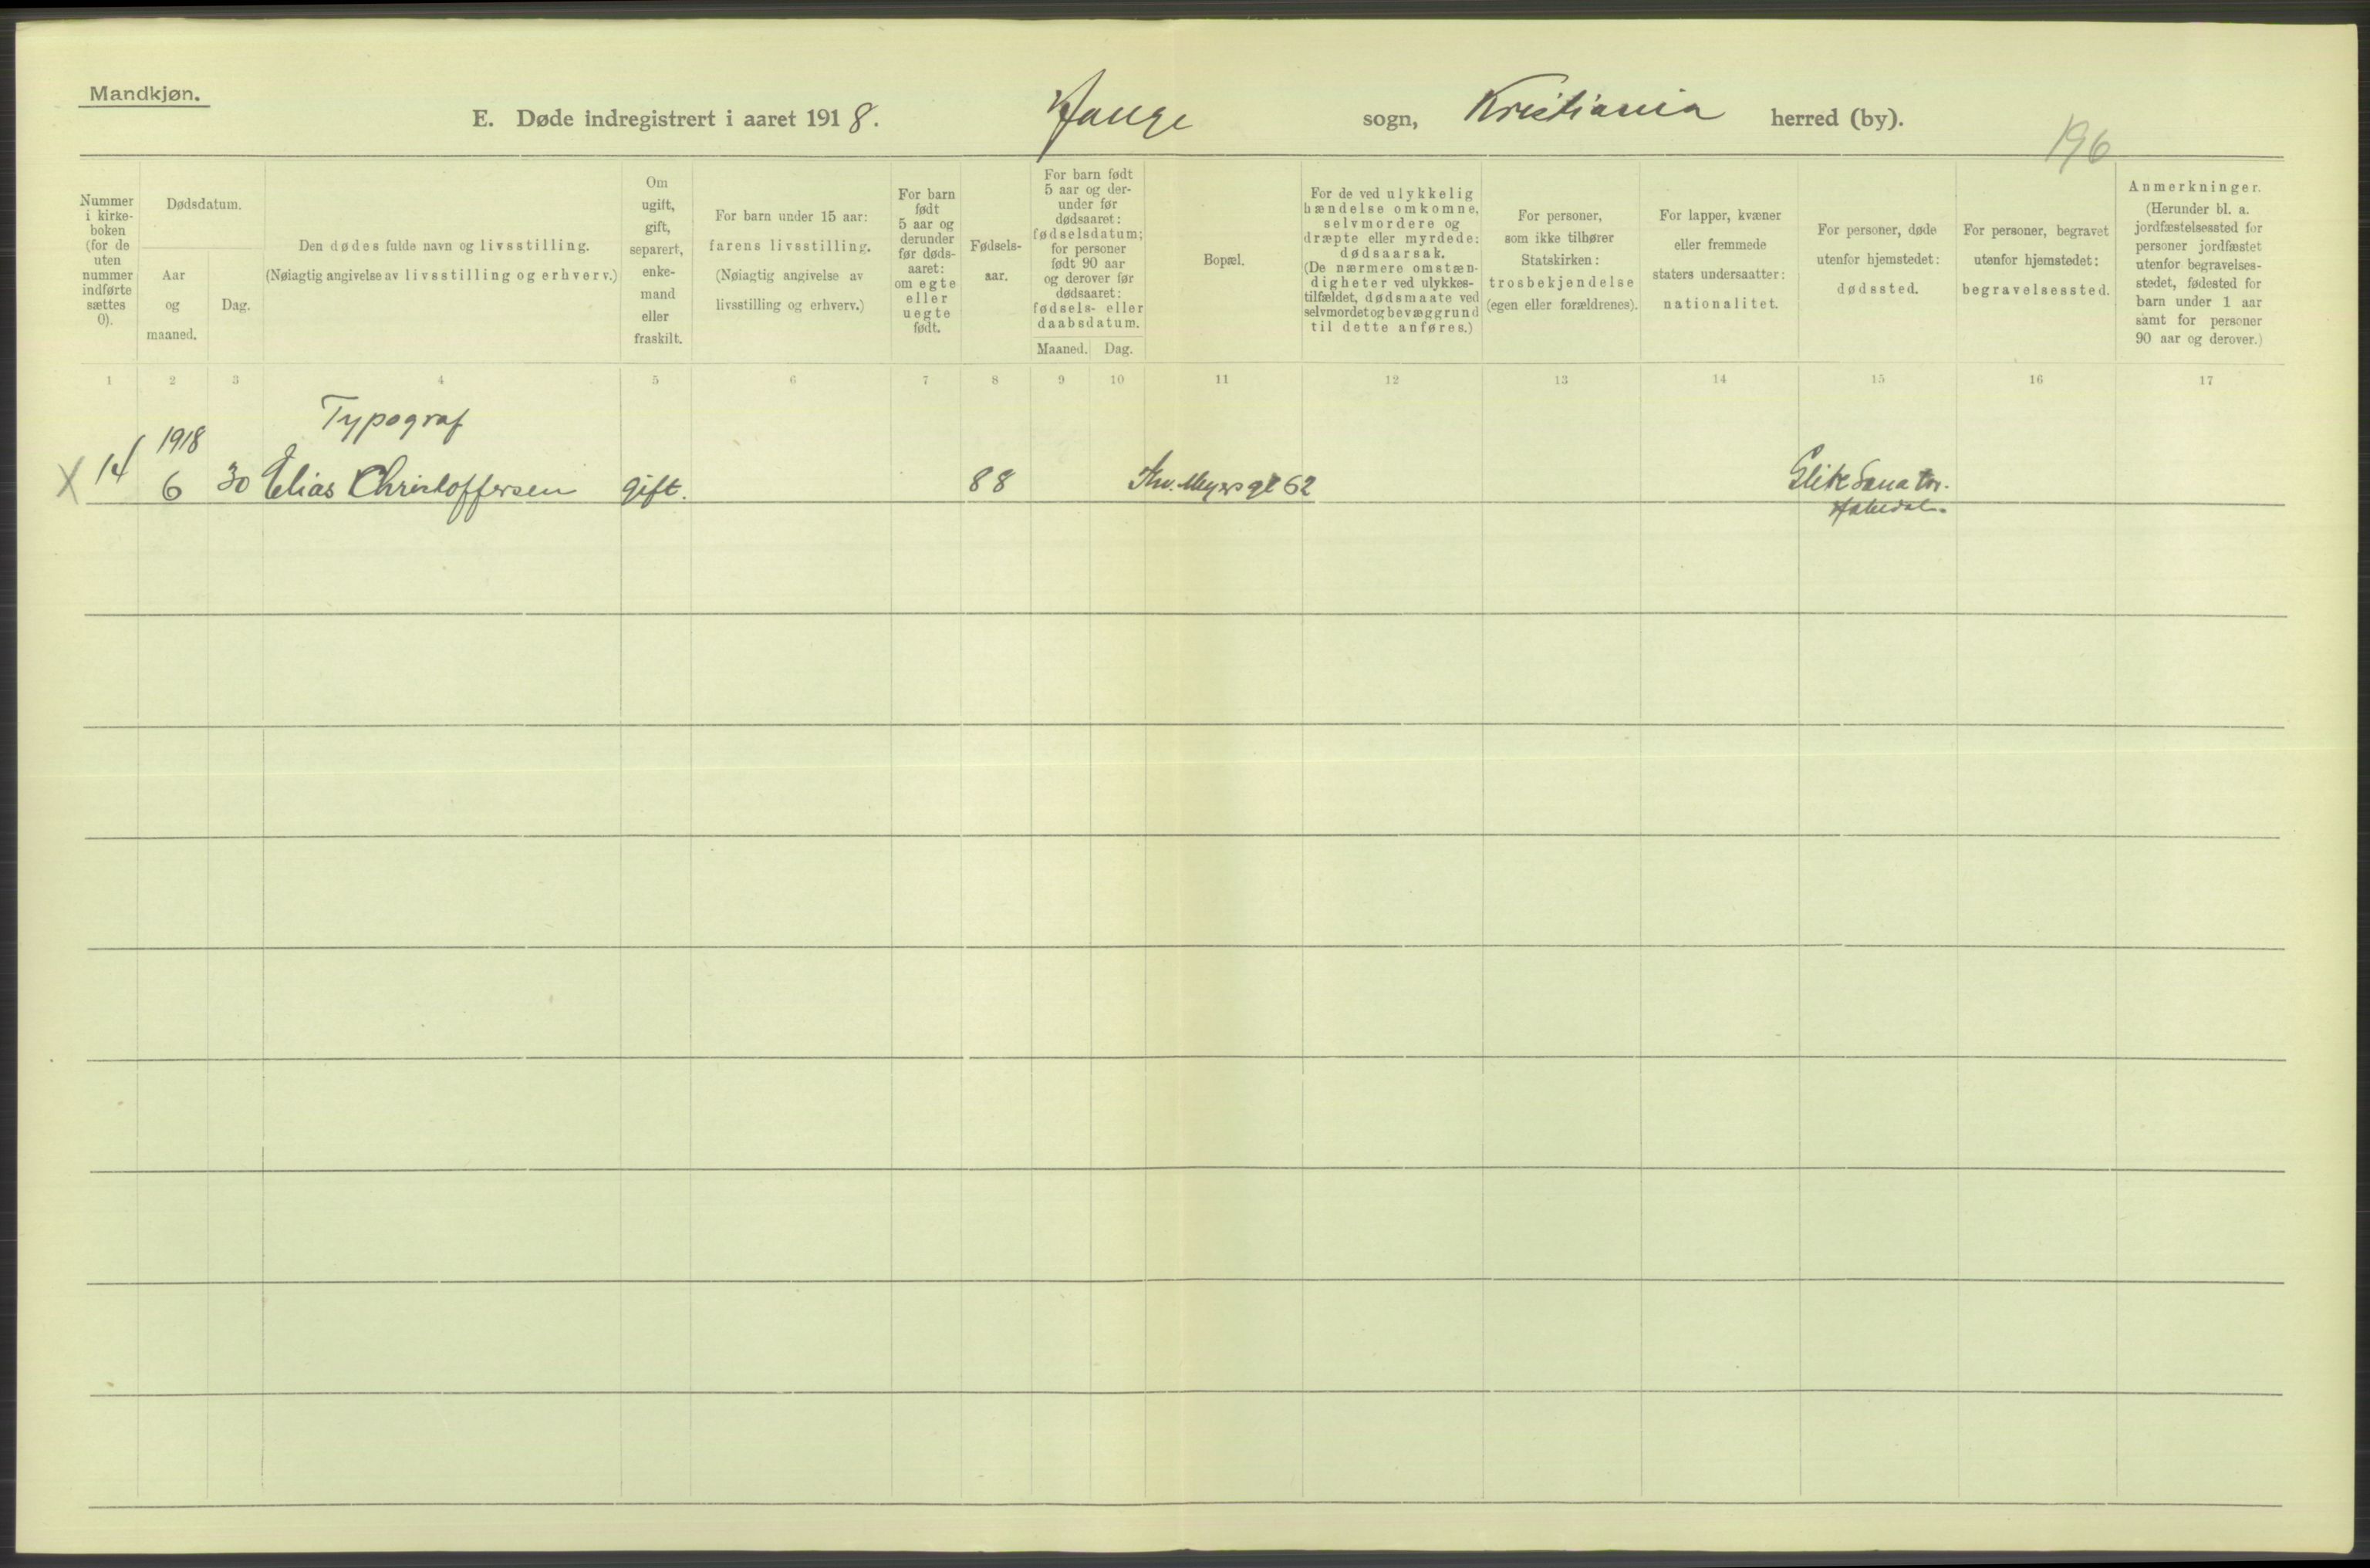 Mandkjøn.
E. Døde indregistrert i aaret 1918. Hauge sogn, Kristiania herred (by).
196
Nummer i kirke-boken (for de uten nummer indførte sættes 0).
Dødsdatum.
Aar og maaned.
Dag.
Den dødes fulde navn og livsstilling.
(Nøiagtig angivelse av livsstilling og erhverv.)
Om ugift, gift, separert, enke-mand eller fraskilt.
For barn under 15 aar:
farens livsstilling.
(Nøiagtig angivelse av
livsstilling og erhverv.)
For barn født 5 aar og derunder før døds-aaret: om egte eller uegte født.
Fødsels-aar.
For barn født 5 aar og der-under før dødsaaret: fødselsdatum; for personer født 90 aar og derover før dødsaaret: fødsels- eller daabsdatum.
Maaned. Dag.
Bopæl.
For de ved ulykkelig hændelse omkomne, selvmordere og dræpte eller myrdede: dødsaarsak.
(De nærmere omstæn-digheter ved ulykkes-tilfældet, dødsmaate ved selvmordet og bevæggrund til dette anføres.)
For personer, som ikke tilhører Statskirken: trosbekjendelse (egen eller forældrenes).
For lapper, kvæner eller fremmede staters undersaatter: nationalitet.
For personer, døde utenfor hjemstedet: dødssted.
For personer, begravet utenfor hjemstedet: begravelsessted.
Anmerkninger.
(Herunder bl. a. jordfæstelsessted for personer jordfæstet utenfor begravelses-stedet, fødested for barn under 1 aar samt for personer 90 aar og derover.)
1 2 3 4 5 6 7 8 9 10 11 12 13 14 15 16 17
Typograf
1918
X 14 6 30 Elias Christoffersen gift. 88 Thv. Meyers gt 62 Sanator.